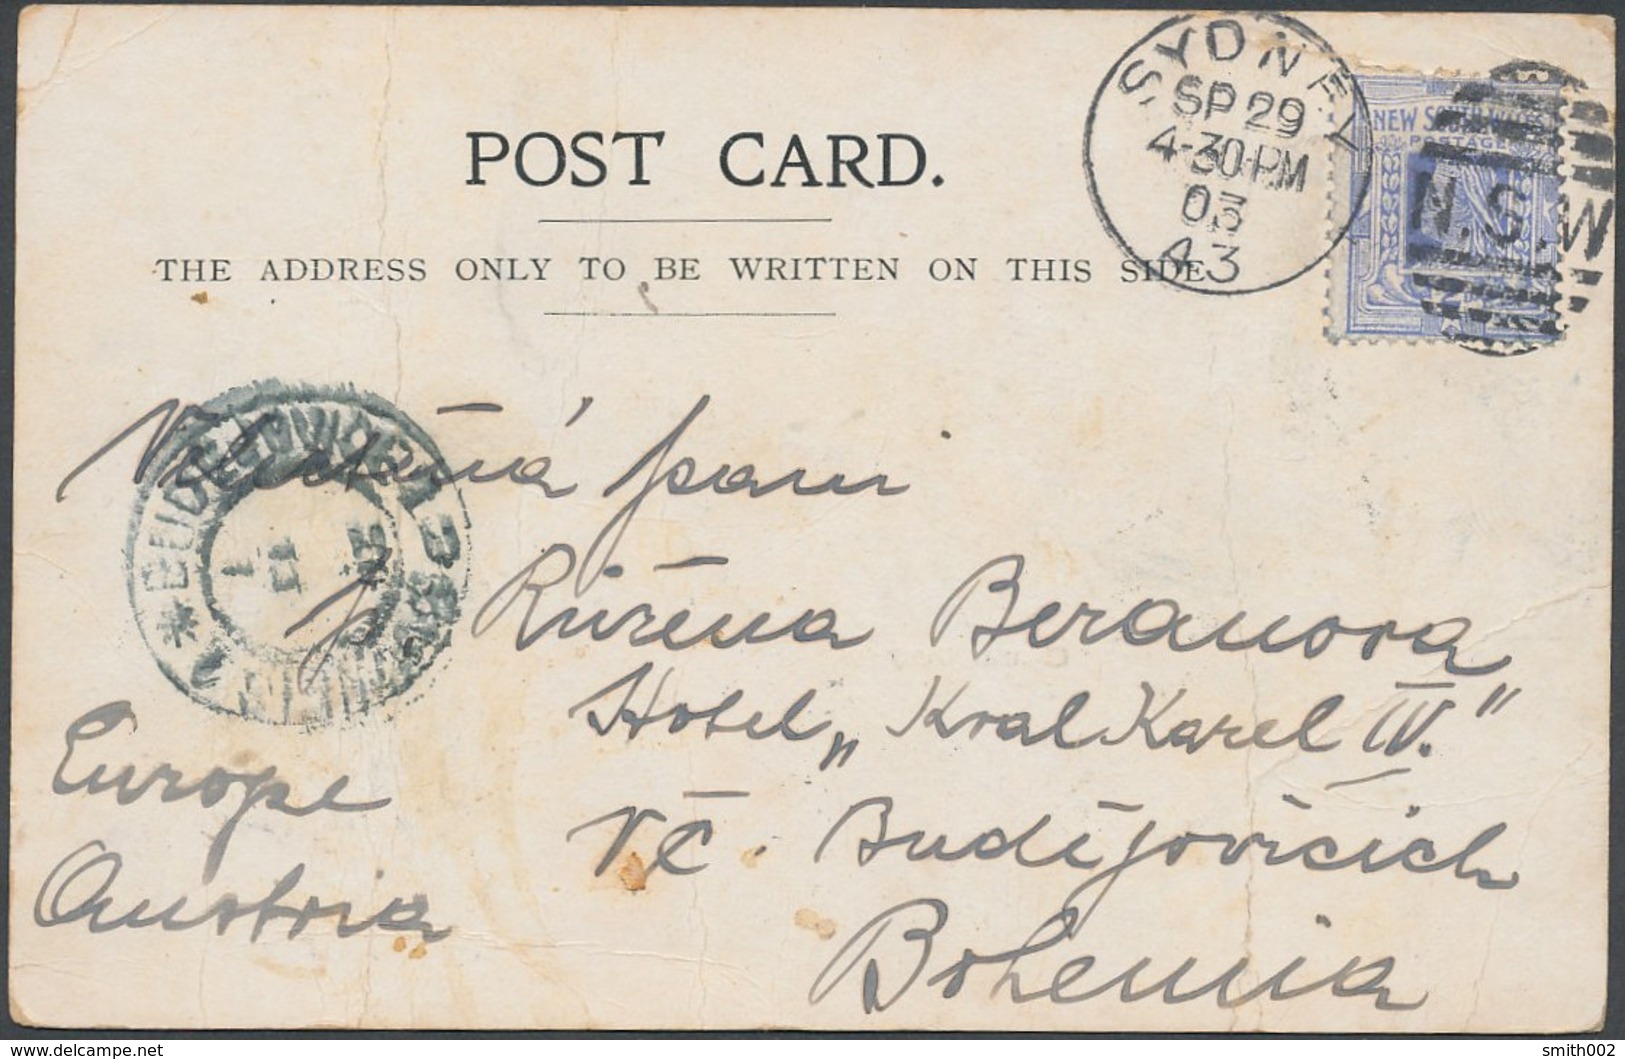 POST CARD.
THE ADDRESS ONLY TO BE WRITTEN ON THIS SIDE
SYDNEY
SP 29
4-30.PM
03
43
NEW SOUTH WALES
POSTAGE
N.S.W
paní
p. Růžena Beranova
Hotel „Kral Karel IV."
v Č. Budějovicích
Bohemia
Europe
Austria
BUDĚJOVICE
delcampe.net
smith002